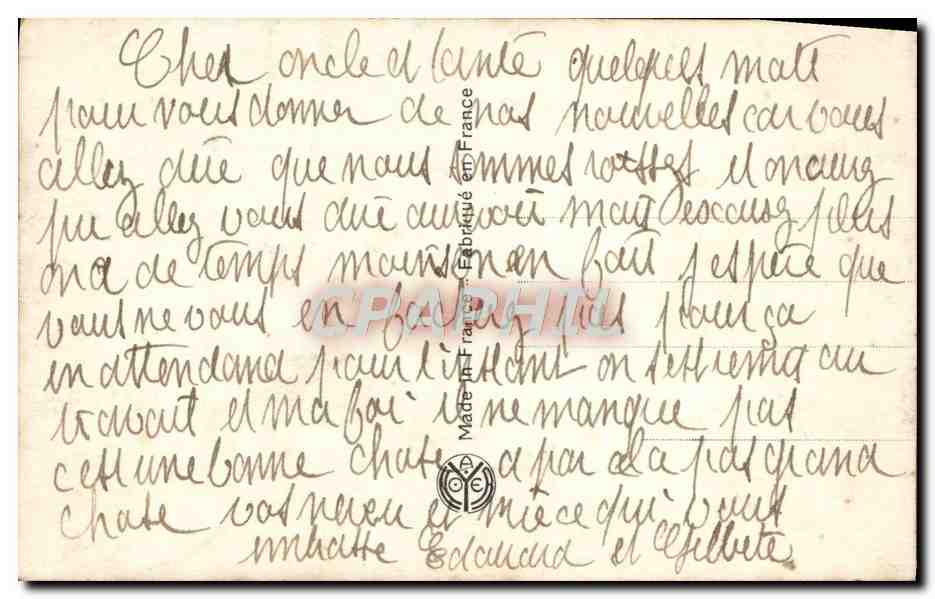 Cher oncle et tante quelques mots
pour vous donner de nos nouvelles car vous
allez dire que nous sommes rosses et on aurez
pu allez vous dire aurevoir mais desausez plus
on a de temps moins on en fait j'espere que
vous ne vous en facherez pas pour ça
en attendand pour l'instant on s'est remis au
travail et ma foi il ne manque pas
c'est une bonne chose, a par cela pas grand
chose vos neveu et nièce qui vous
embrasse Edouard et Gilberte
Made in France - Fabriqué en France
CPAPHIL